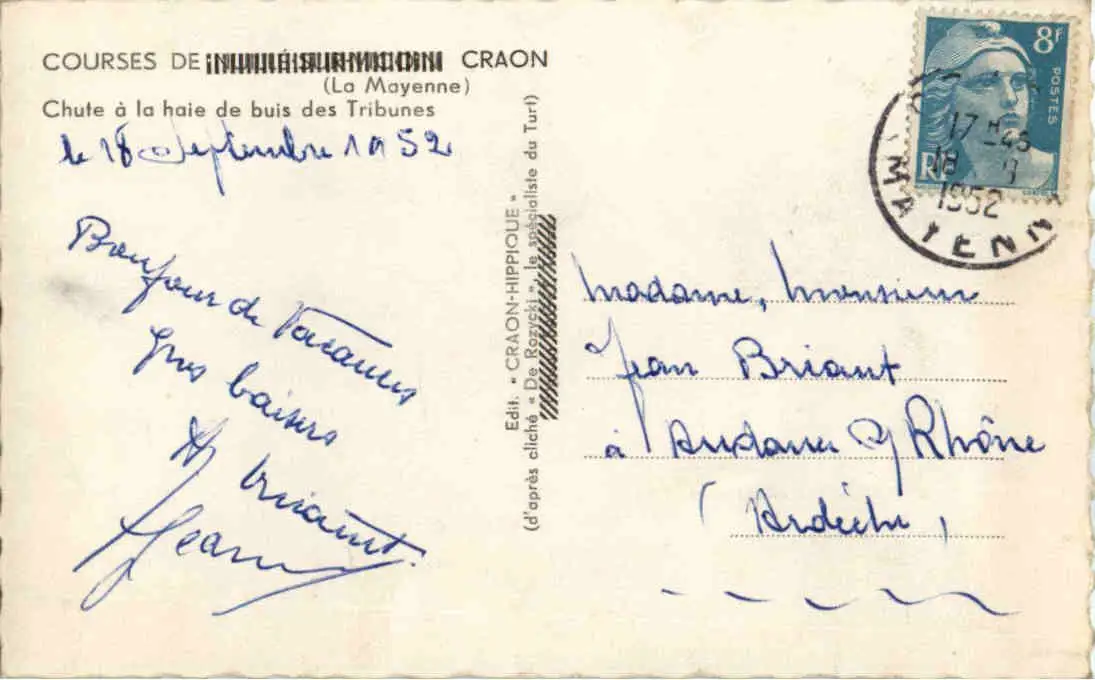 COURSES DE CRAON
(La Mayenne)
Chute à la haie de buis des Tribunes
le 18 Septembre 1952
Bonjour de Vacances
gros baisers
briant
Jean
Edit. « CRAON-HIPPIQUE »
(d'après cliché « De Rozycki », le spécialiste du Turf)
8F
POSTES
RF
17 H -45
18 - 9
1952
MAYENN
Madame, Monsieur
Jean Briant
à Andance s/ Rhône
(Ardèche)